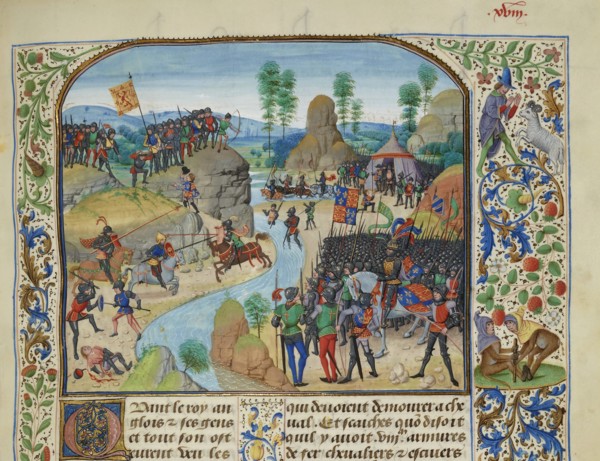 .xviij.
Quant le roy an
glois & ses gens
et tout son ost
eurent veu les
qui devoient demourer a che
ual. Et scaches quō disoit
quil y avoit .viij.ᵐ armures
de fer chevaliers & escuiers